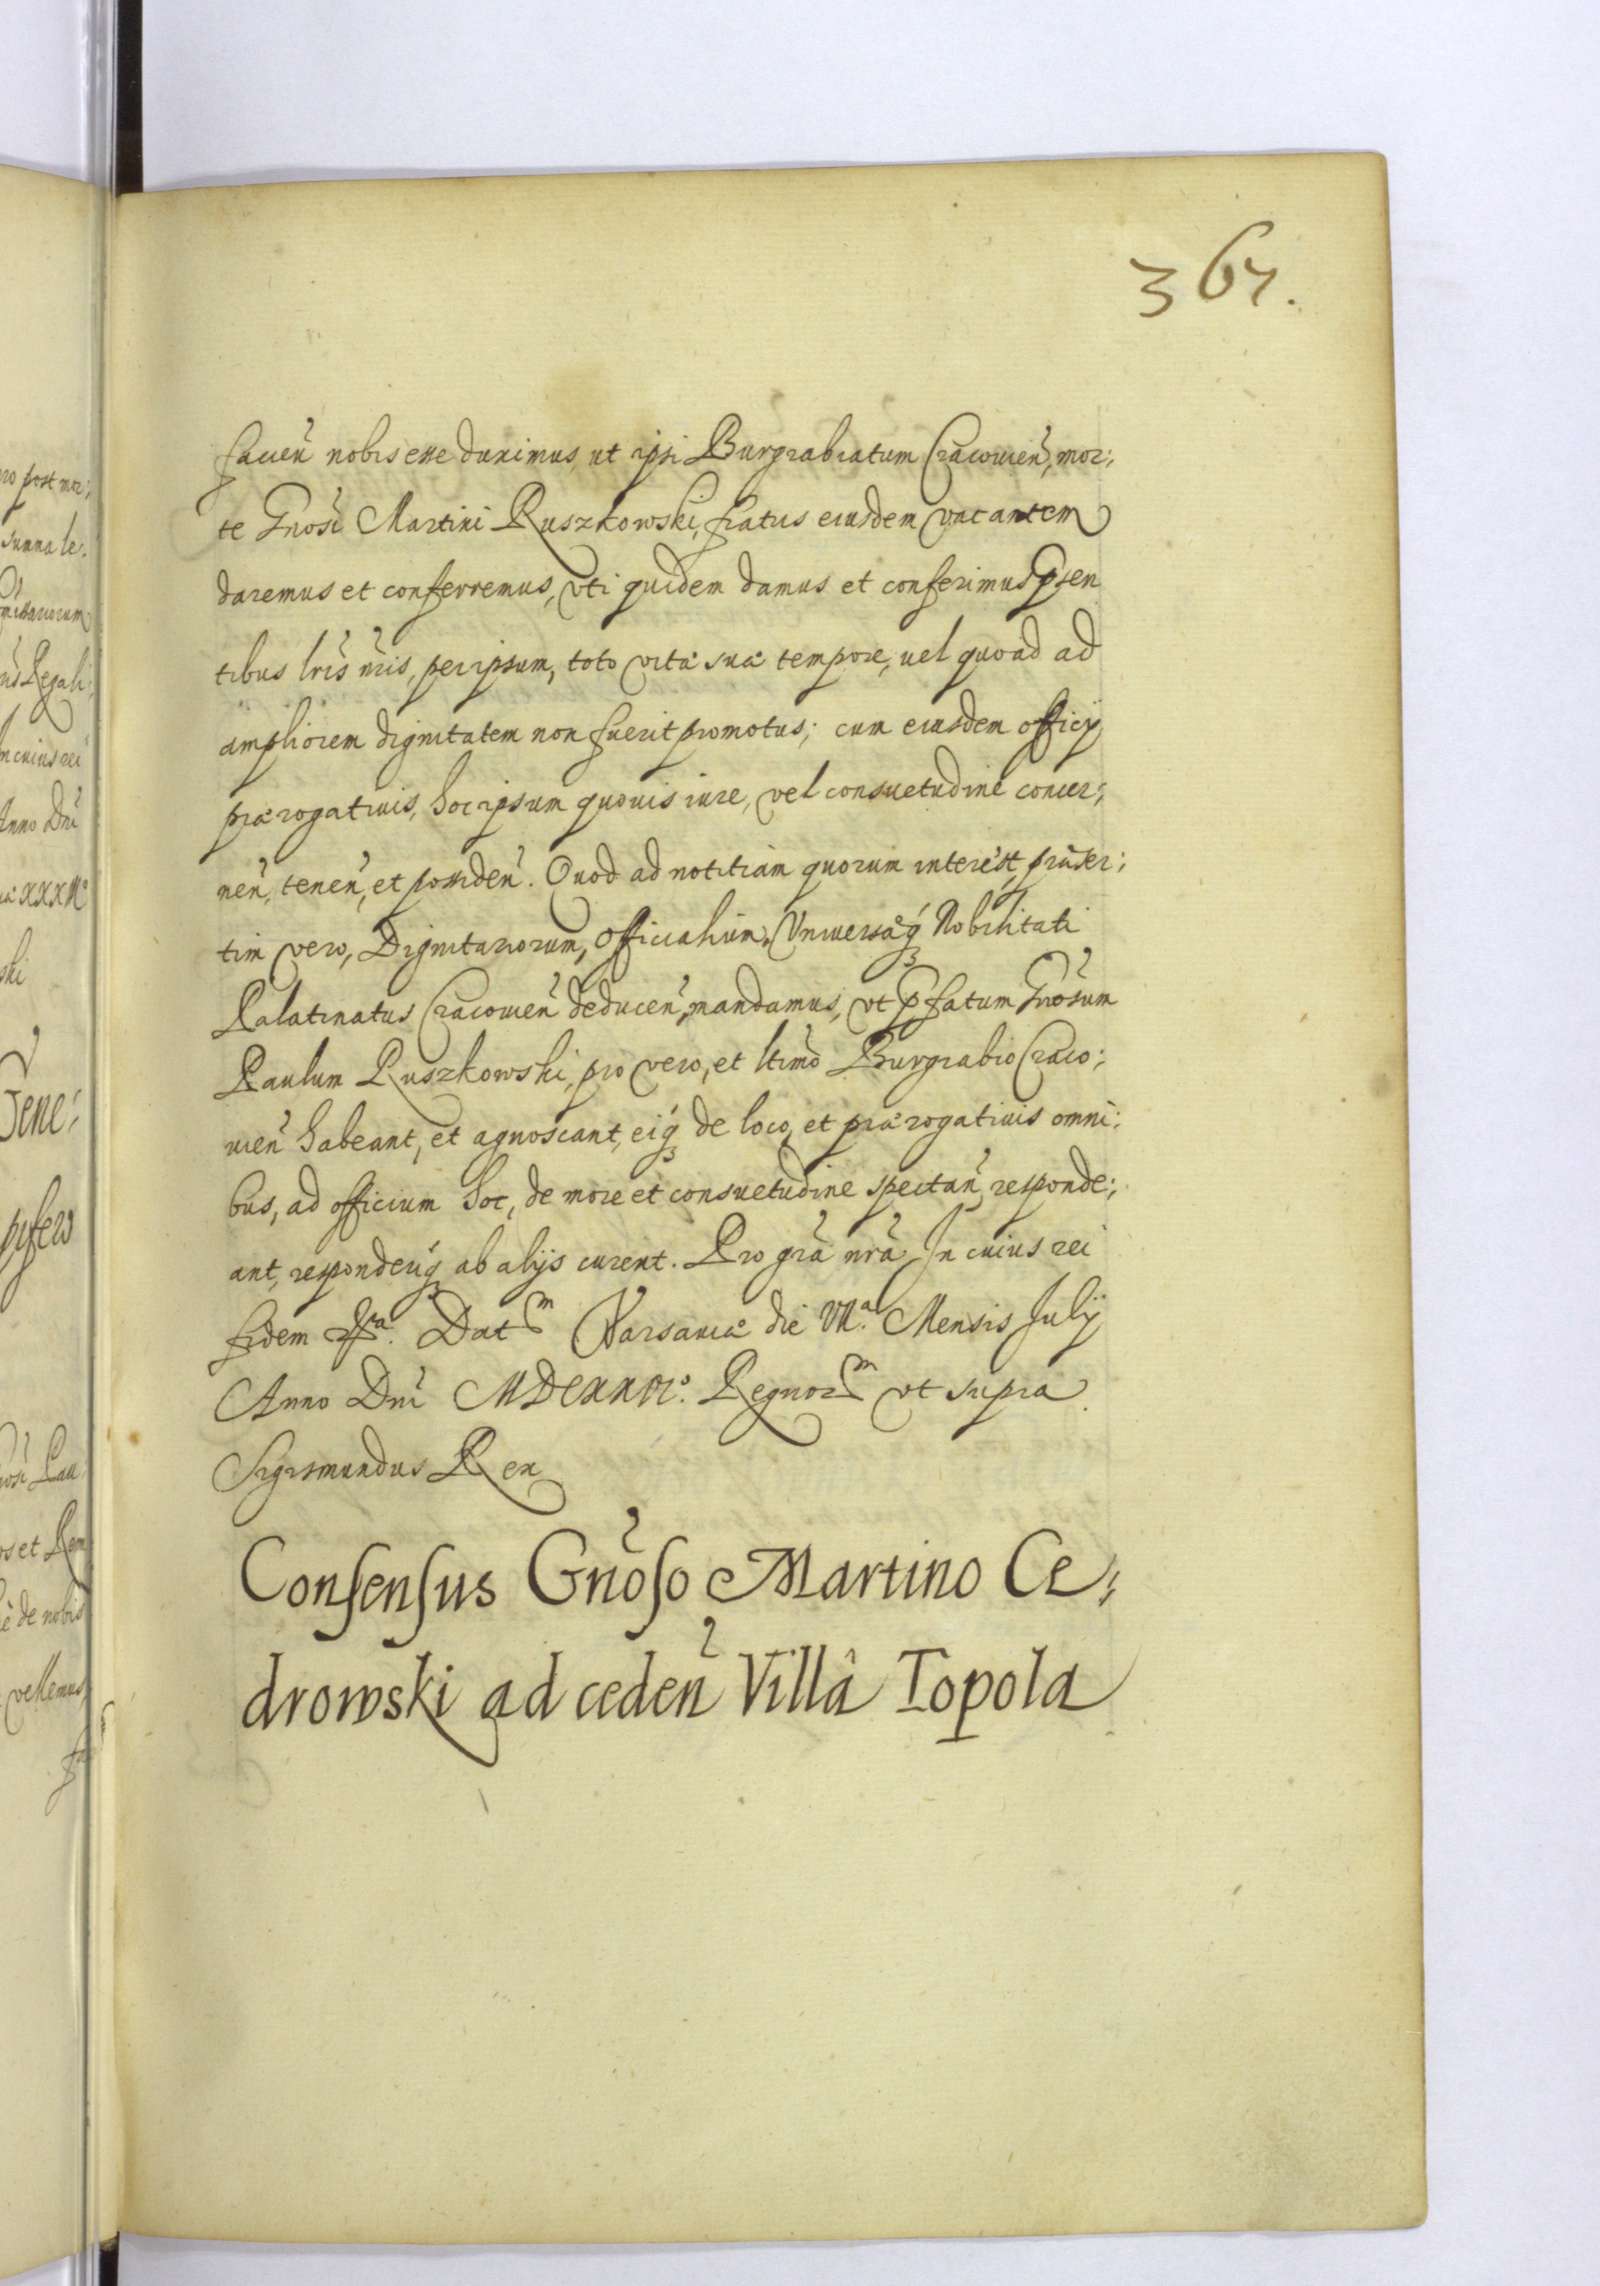 367.
facien̄ nobis esse duximus, ut ipsi Burgrabiatum Cracouien̄, mor:
te Gnosi Martini Ruszkowski, fratris eiusdem vacantem
daremus et conferremus, vti quidem damus et conferimus p̄sen
tibus lr̄is nr̄is, per ipsum, toto vitæ suæ tempore, uel quoad ad
ampliorem dignitatem non fuerit promotus; cum eiusdem officij
prærogatiuis, hoc ipsum quouis iure, vel consuetudine concer:
nen̄, tenen̄, et possiden̄. Quod ad notitiam quorum interest, præser:
tim vero, Dignitariorum, Officialium, Vniuersæq́ꝫ Nobilitati
Palatinatus Cracouien̄ deducen̄, mandamus, vt p̄fatum Gnōsum
Paulum Ruszkowski, pro vero, et ltimō Burgrabio Craco:
uien̄ habeant, et agnoscant, eiq́ꝫ de loco, et prærogatiuis omni:
bus, ad officium hoc, de more et consuetudine spectan̄, responde:
ant, responderiq́ꝫ ab alijs curent. Pro grā nrā. In cuius rei
fidem &ᵃ. Datᵐ Varsauiæ die VIIᵃ. Mensis Julij
Anno Dn̄i MDCXXIIº. Regnorᵐ vt supra.
Sigismundus Rex
Consensus Gnōso Martino Ce:
drowski ad ceden̄ Villâ Topola
ro post mor:
summa le.
Regali
in cuius rei
Anno Dn̄i
ski
Gene:
pifero
et Rem
de nobis
vellemus